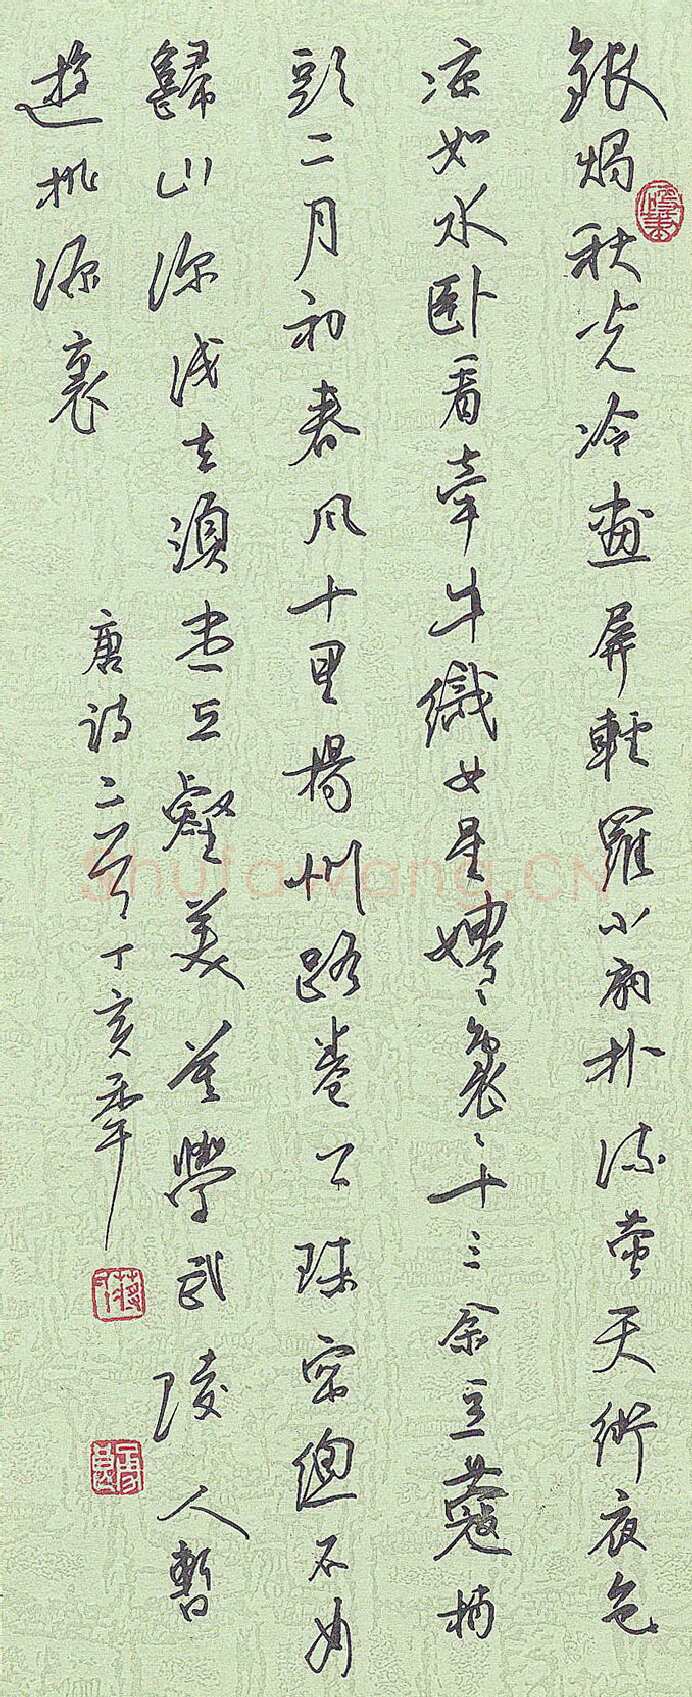 銀燭秋光冷畫屏輕羅小扇扑流螢天街夜色
涼如水卧看牽牛織女星娉々裊々十三余豆蔻梢
頭二月初春風十里揚州路卷上珠帘總不如
歸山深淺去須盡丘壑美莫學武陵人暫
遊桃源裏
唐詩 丁亥
Shufawang.CN